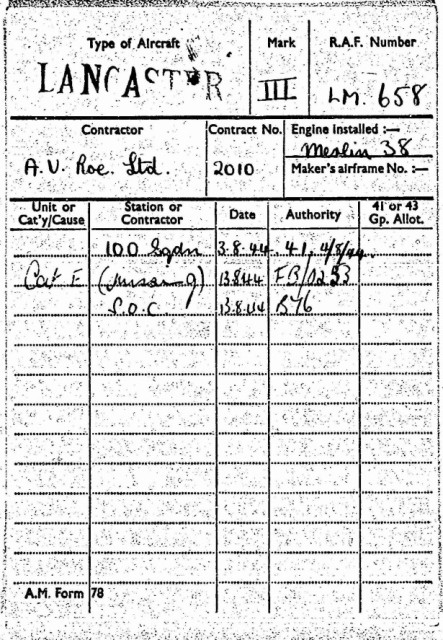 Type of Aircraft Mark R.A.F. Number
LANCASTER III LM. 658
Contractor Contract No. Engine installed :—
A.V. Roe. Ltd. 2010 Merlin 38
Maker's airframe No. :—
Unit or Cat'y/Cause Station or Contractor Date Authority 41 or 43 Gp. Allot.
100 Sqdn 3.8.44 41, 4/8/44.
Cat E (missing) 13.8.44
S.O.C. 13.8.44
A.M. Form 78